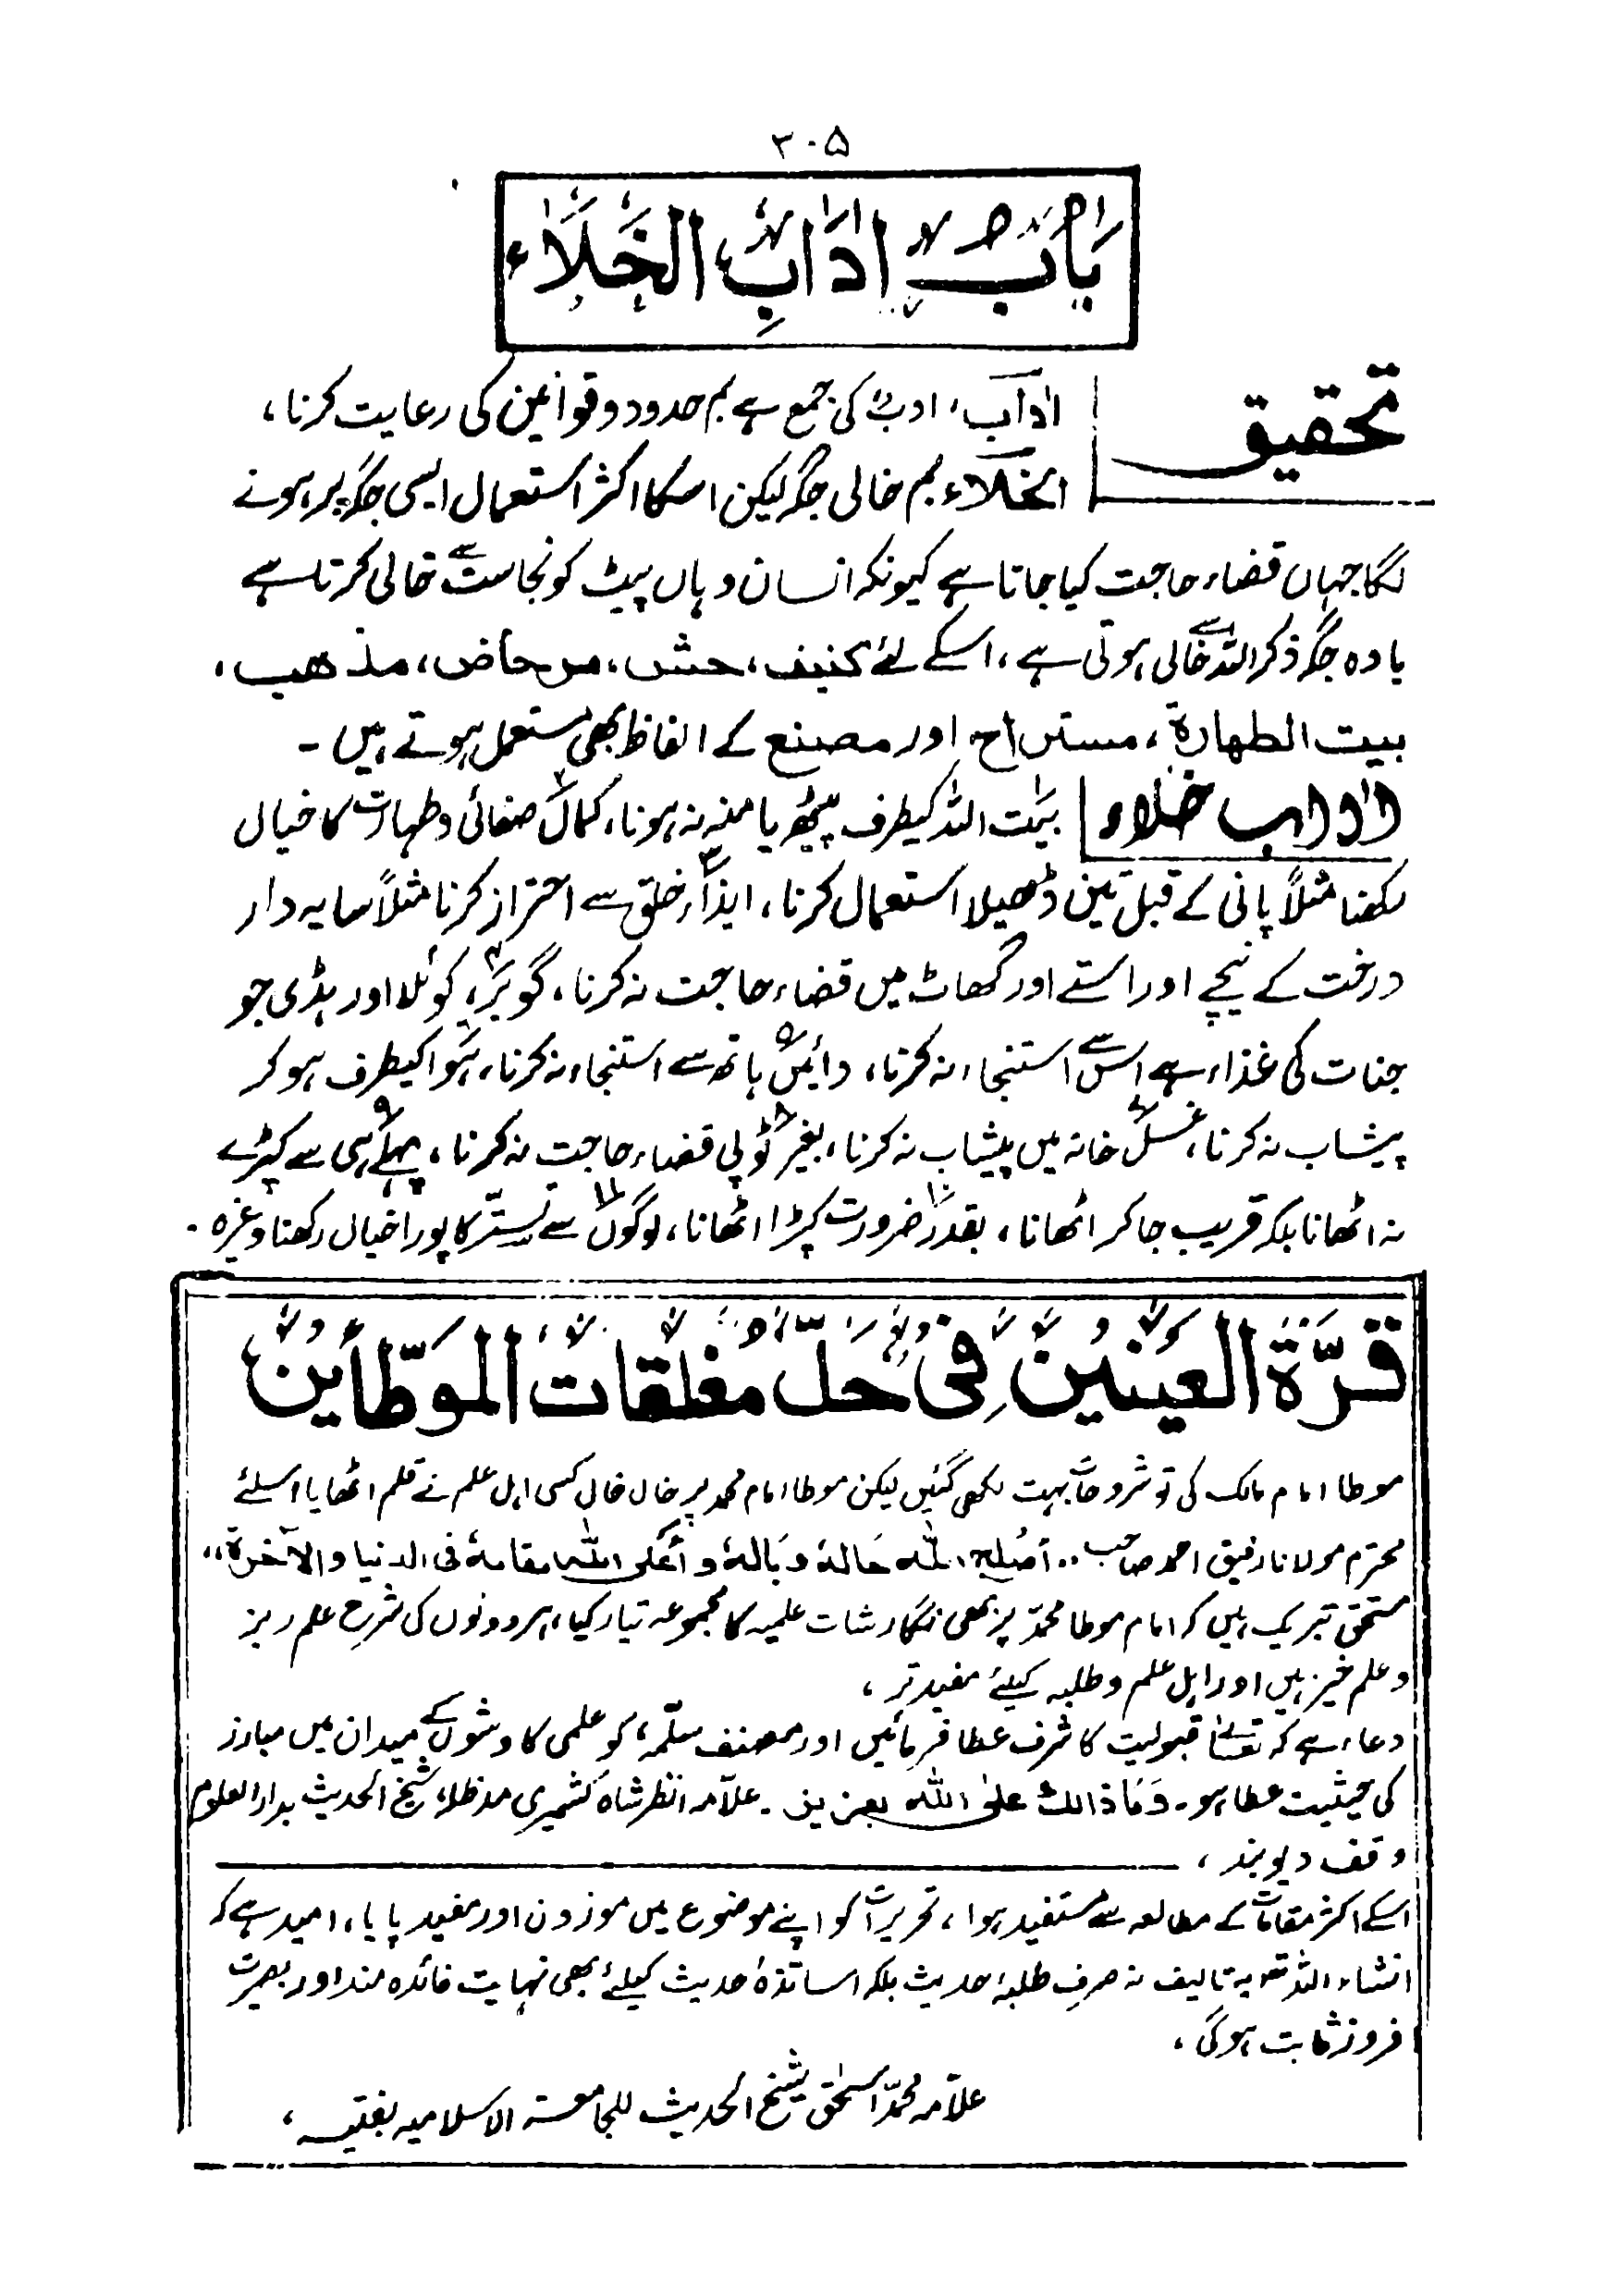 ۲۰۵
بَابُ اٰدَابِ الْخَلَاء
تحقیق
اٰدابٌ، ادبٌ کی جمع ہے بم حدود وقوانین کی رعایت کرنا،
الخلاء بم خالی جگہ لیکن اسکا اکثر استعمال ایسی جگہ پر ہونے
لگا جہاں قضاء حاجت کیا جاتا ہے کیونکہ انسان وہاں پیٹ کو نجاست سے خالی کرتا ہے
یا وہ جگہ ذکر اللہ سے خالی ہوتی ہے، اسکے لئے کنیف، حش، مرحاض، مذھب،
بیت الطهارة، مستراح اور مصنع کے الفاظ بھی مستعمل ہوتے ہیں۔
اٰداب خلاء
بیت اللہ کیطرف پیٹھ یا منہ نہ ہونا، ۲ کمال صفائی وطہارت کا خیال
رکھنا مثلاً پانی کے قبل تین ڈھیلا استعمال کرنا، ۳ ایذاء خلق سے احتراز کرنا مثلاً سایہ دار
درخت کے نیچے اور راستے اور گھاٹ میں قضاء حاجت نہ کرنا، ۴ گوبر، کوئلا اور ہڈی جو
جنات کی غذاء ہے اس سے استنجاء نہ کرنا، ۵ دائیں ہاتھ سے استنجاء نہ کرنا، ۶ ہوا کیطرف ہوکر
پیشاب نہ کرنا، ۷ غسل خانہ میں پیشاب نہ کرنا، ۸ بغیر ٹوپی قضاء حاجت نہ کرنا، ۹ پہلے ہی سے کپڑے
نہ اٹھانا بلکہ قریب جاکر اٹھانا، ۱۰ بقدر ضرورت کپڑا اٹھانا، ۱۱ لوگوں سے تستّر کا پورا خیال رکھنا وغیرہ۔
قُرَّةُ الْعَيْنَيْنِ فِي حَلِّ مُغْلَقَاتِ الْمُوَطَّأَيْنِ
موطا امام مالک کی تو شروحات بہت لکھی گئیں لیکن موطا امام محمد پر خال خال کسی اہل علم نے قلم اٹھایا اسلئے
محترم مولانا رفیق احمد صاحب ،، أصلح الله حالهٗ وبالهٗ وأعلى الله مقامهٗ فی الدنیا والآخرة ،،
مستحق تبریک ہیں کہ امام موطا محمدؒ پر بھی نگارشات علمیہ کا مجموعہ تیار کیا، ہر دونوں کی شرح علم ریز
وعلم خیز ہیں اور اہل علم وطلبہ کیلئے مفید تر،
دعاء ہے کہ تعالیٰ قبولیت کا شرف عطا فرمائیں اور مصنف سلّمہ، کو علمی کاوشوں کے میدان میں مبارز
کی حیثیت عطا ہو۔ وَمَا ذالك علی الله بعزیز۔ علاّمہ انظر شاہ کشمیری مدظلہٗ شیخ الحدیث بدار العلوم
وقف دیوبند،
اسکے اکثر مقامات کے مطالعہ سے مستفید ہوا، تحریرات کو اپنے موضوع میں موزون اور مفید پایا، امید ہے کہ
انشاء اللہ تعہ یہ تالیف نہ صرف طلبۂ حدیث بلکہ اساتذۂ حدیث کیلئے بھی نہایت فائدہ مند اور بصیرت
افروز ثابت ہوگی،
علاّمہ محمدّ اسحٰق شیخ الحدیث للجامعة الاسلامیہ بفتیہ،